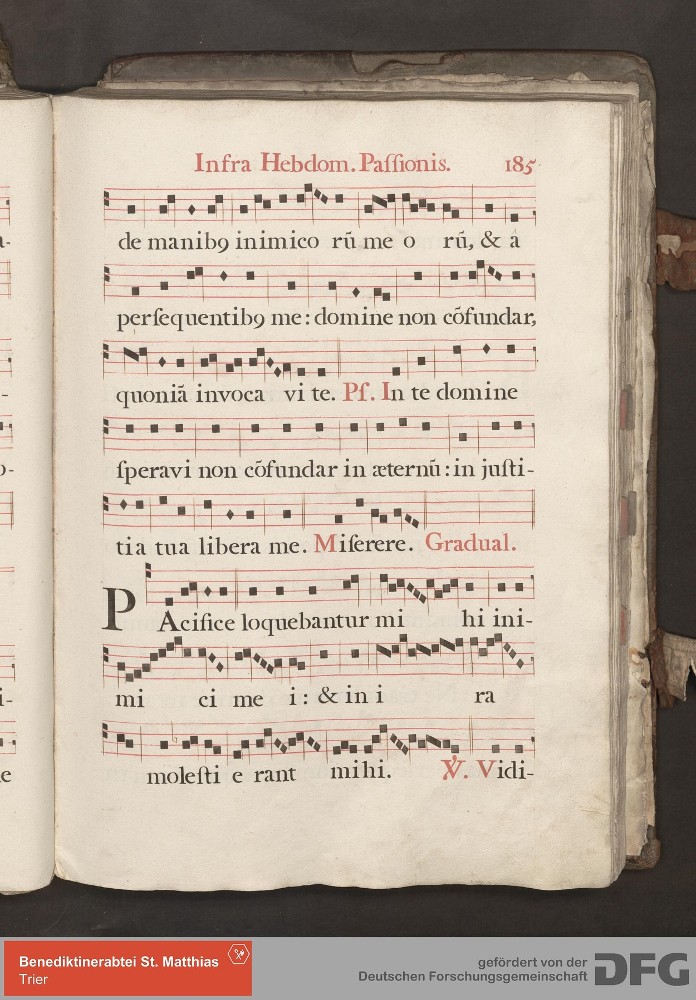 Infra Hebdom. Paſſionis. 185
de manibꝯ inimico rũ me o rũ, & a
perſequentibꝯ me: domine non cõfundar,
quoniã invoca vi te. Pſ. In te domine
ſperavi non cõfundar in æternũ: in juſti-
tia tua libera me. Miſerere. Gradual.
PAcifice loquebantur mi hi ini-
mi ci me i: & in i ra
moleſti e rant mihi. ℣. Vidi-
Benediktinerabtei St. Matthias
Trier
gefördert von der
Deutschen Forschungsgemeinschaft
DFG